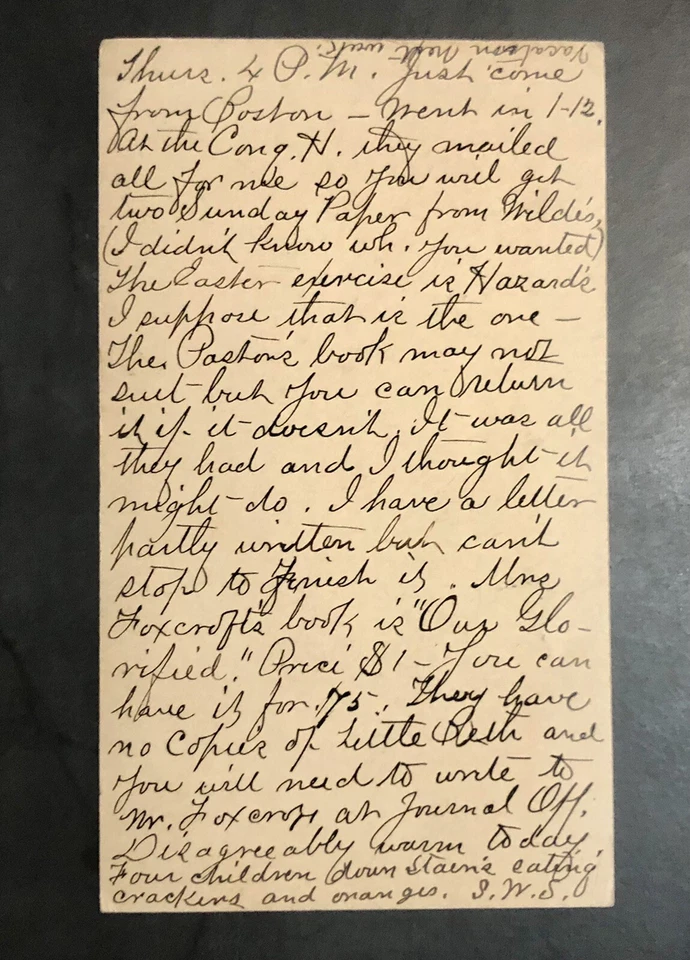 Vacation next week.
Thurs. 4 P.M. Just come
from Boston - Went in 1-12.
At the Cong. H. they mailed
all for me so you will get
two Sunday Paper from Wilde's,
(I didn't know wh. you wanted)
The Easter exercise is Hazard's
I suppose that is the one -
The Pastor's book may not
suit but you can return
it if it doesn't. It was all
they had and I thought it
might do. I have a letter
partly written but can't
stop to finish it. Mrs
Foxcroft's book is "Our Glo-
rified." Price $1 - You can
have it for .75. They have
no Copies of Little Beth and
you will need to write to
Mr. Foxcroft at Journal Off.
Disagreeably warm today.
Four children down stairs eating
crackers and oranges. I.W.S.